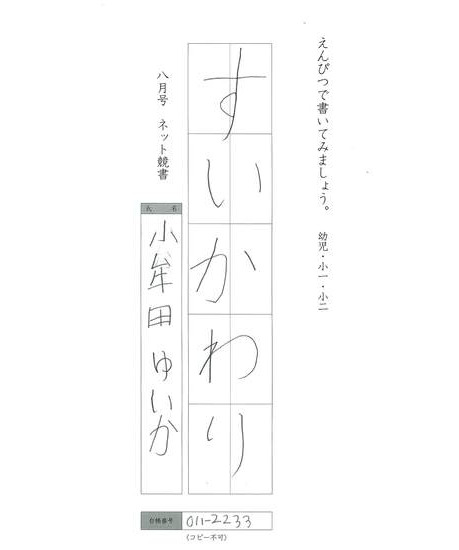 えんぴつで書いてみましょう。 幼児・小一・小二
すいかわり
八月号 ネット競書
氏 名
小牟田 ゆいか
台帳番号 011-2233
(コピー不可)